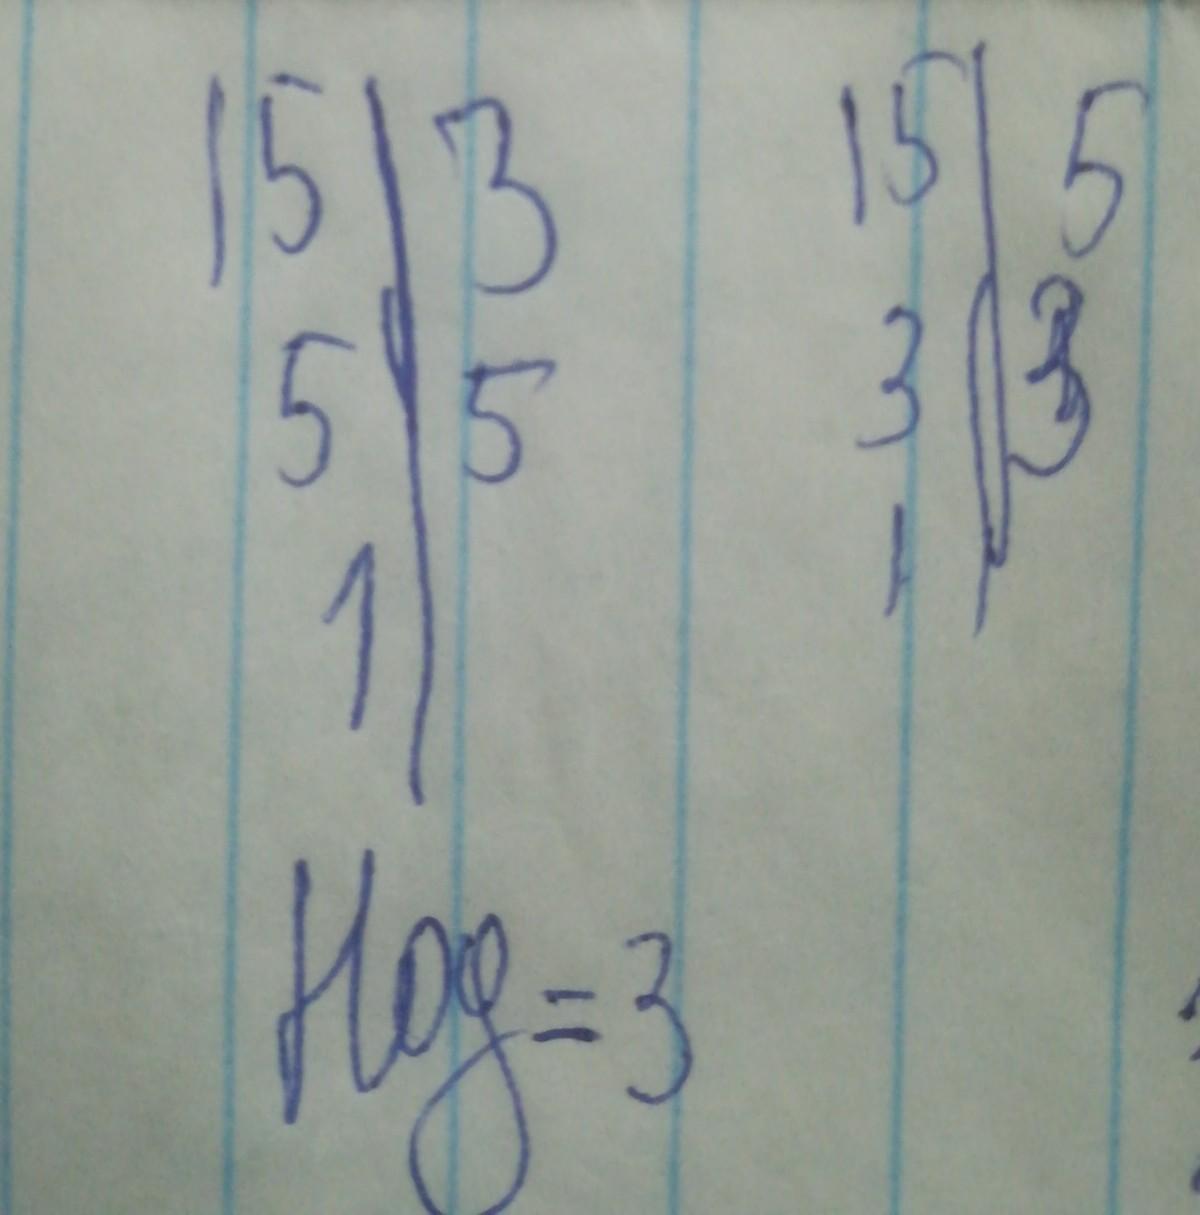 15 | 3
5 | 5
1 |
15 | 5
3 | 3
1 |
Нод = 3